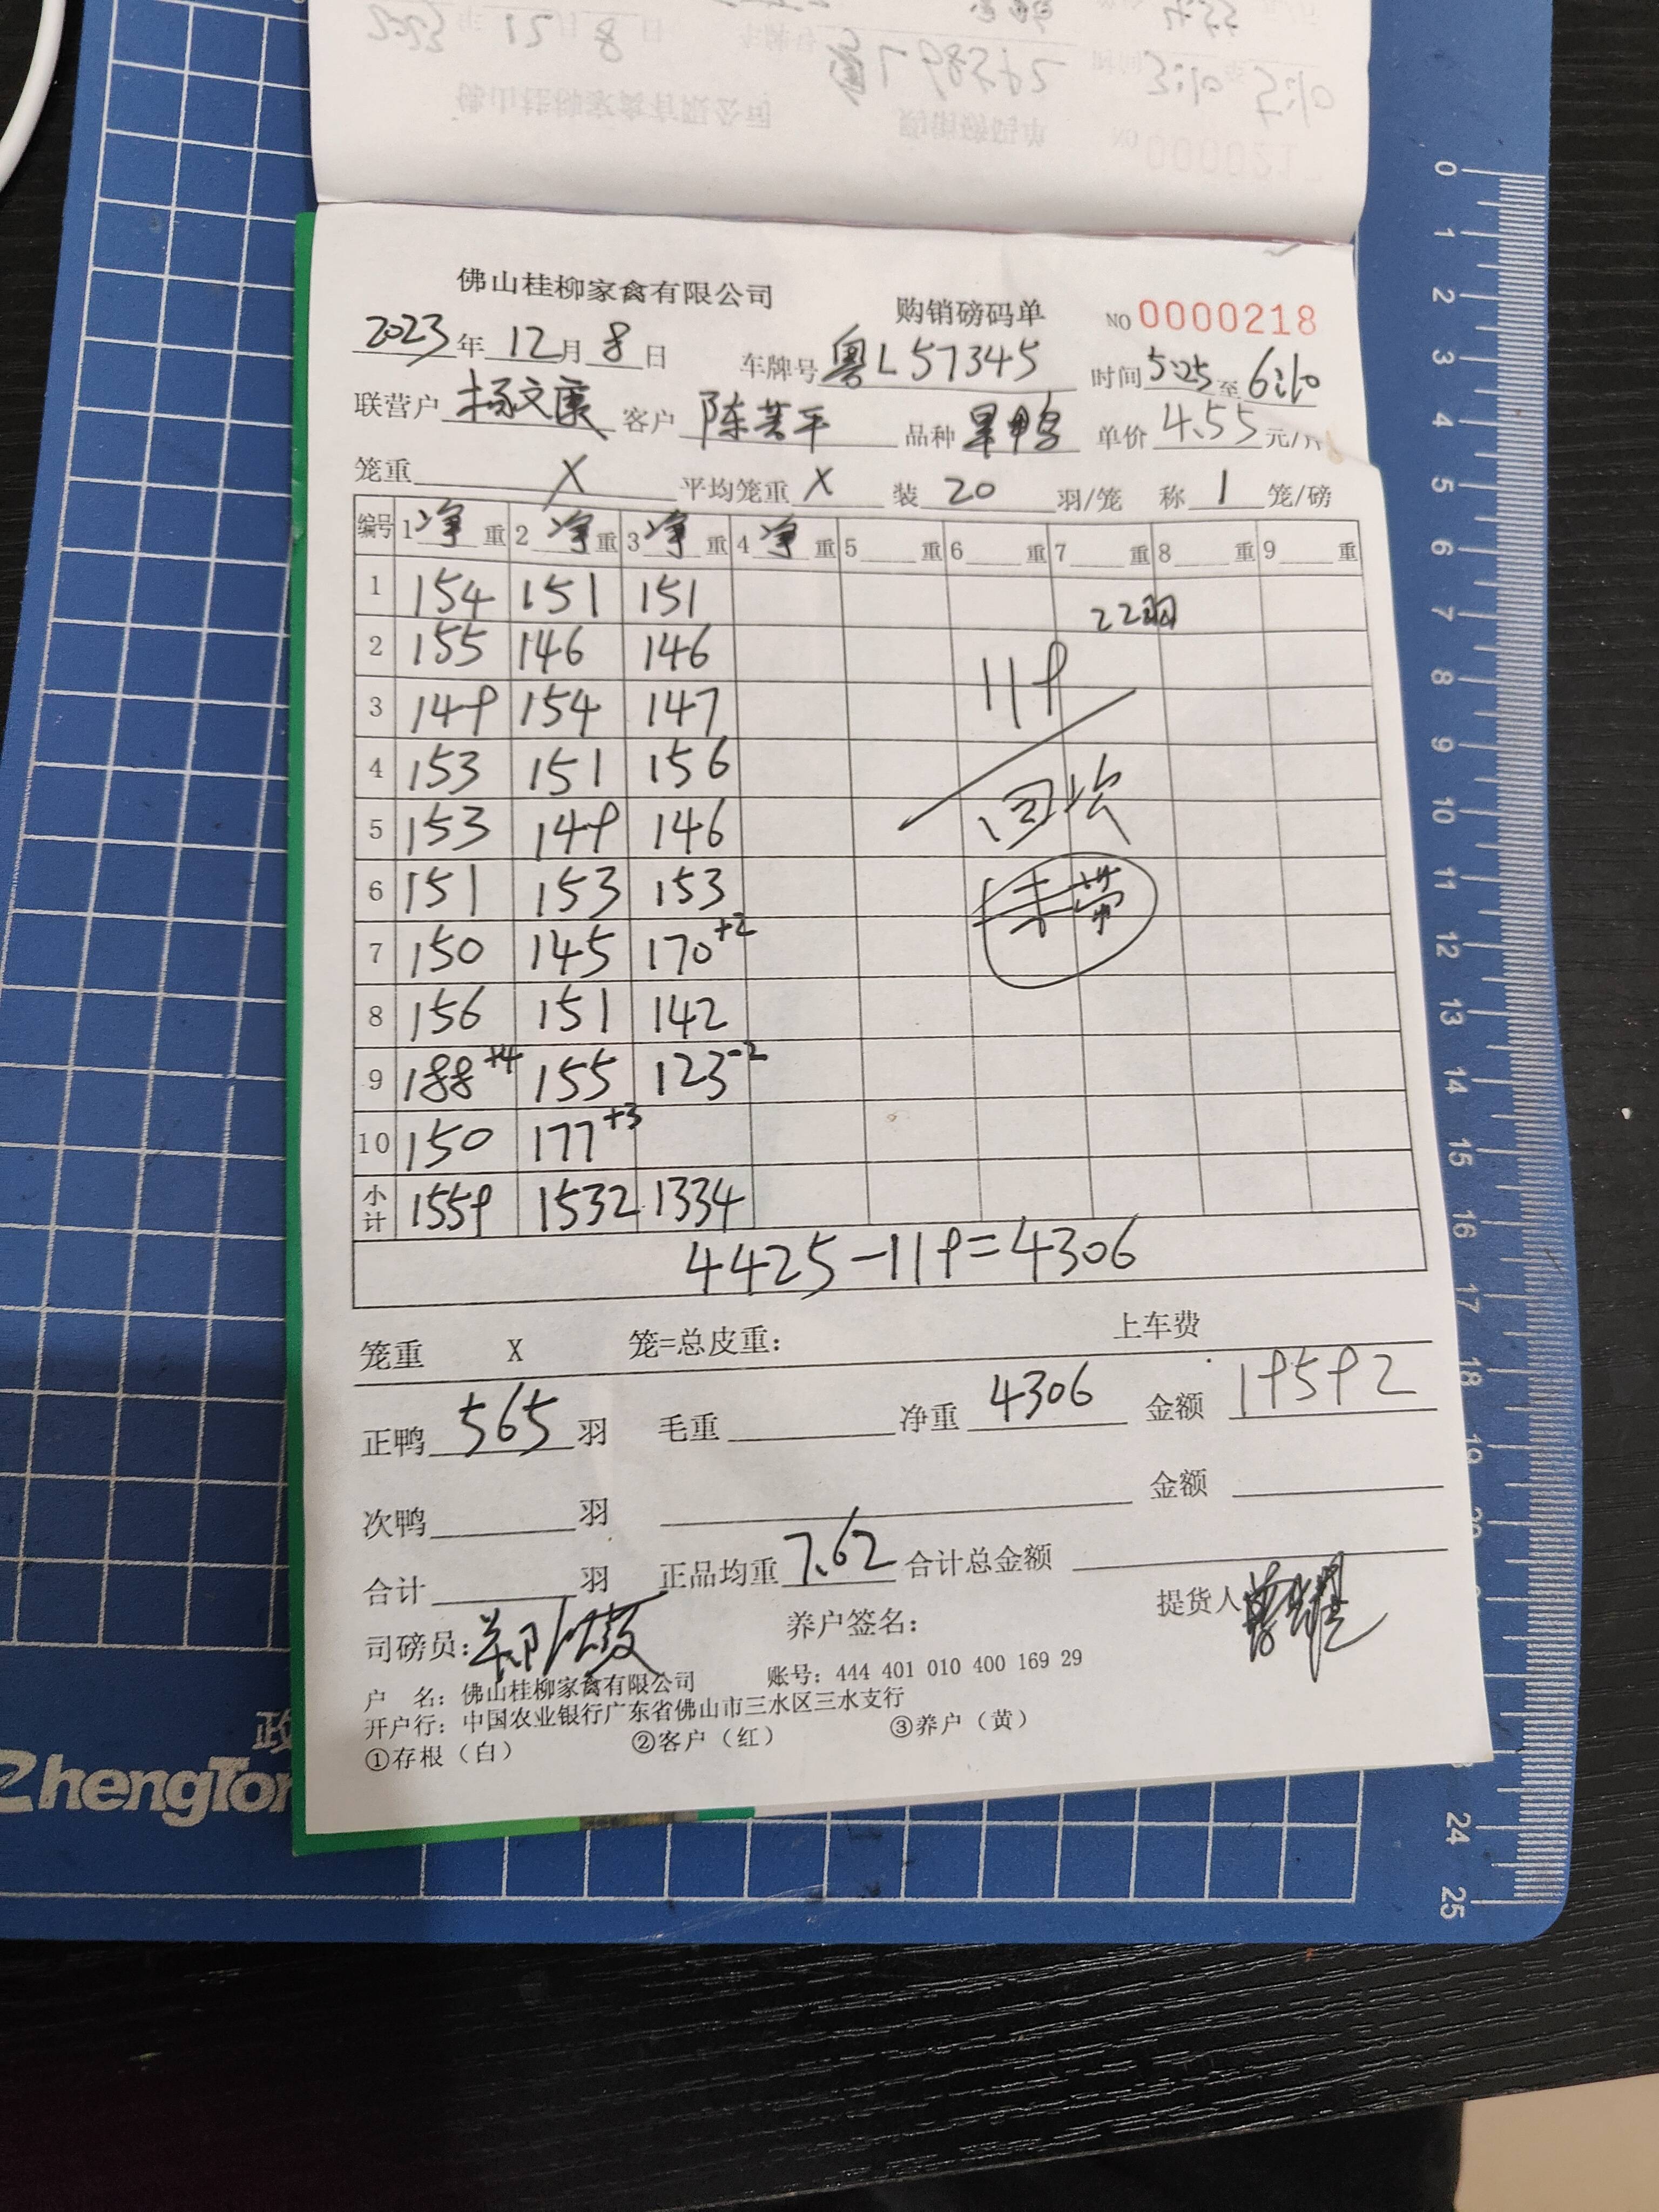 佛山桂柳家禽有限公司 购销磅码单 NO 0000218
2023年 12月 8日 车牌号 粤L57345 时间 5:25 至 6:10
联营户 杨文康 客户 陈芸平 品种 旱鸭 单价 4.55 元/
笼重 X 平均笼重 X 装 20 羽/笼 称 1 笼/磅
编号 1净重 2净重 3净重 4净重 5重 6重 7重 8重 9重
1 154 151 151
22羽
2 155 146 146
119
3 149 154 147
4 153 151 156
回栏
5 153 149 146
6 151 153 153
7 150 145 170+2
8 156 151 142
9 188+4 155 123-2
10 150 177+3
小计 1559 1532 1334
4425-119=4306
笼重 X 笼=总皮重: 上车费
正鸭 565 羽 毛重 净重 4306 金额 19592
次鸭 羽 金额
合计 羽 正品均重 7.62 合计总金额
司磅员: 养户签名: 提货人
户 名: 佛山桂柳家禽有限公司 账号: 444 401 010 400 169 29
开户行: 中国农业银行广东省佛山市三水区三水支行
①存根（白） ②客户（红） ③养户（黄）
0
1
2
3
4
5
6
7
8
9
10
11
12
13
14
15
16
17
18
19
20
24
25
政
ZhengTon